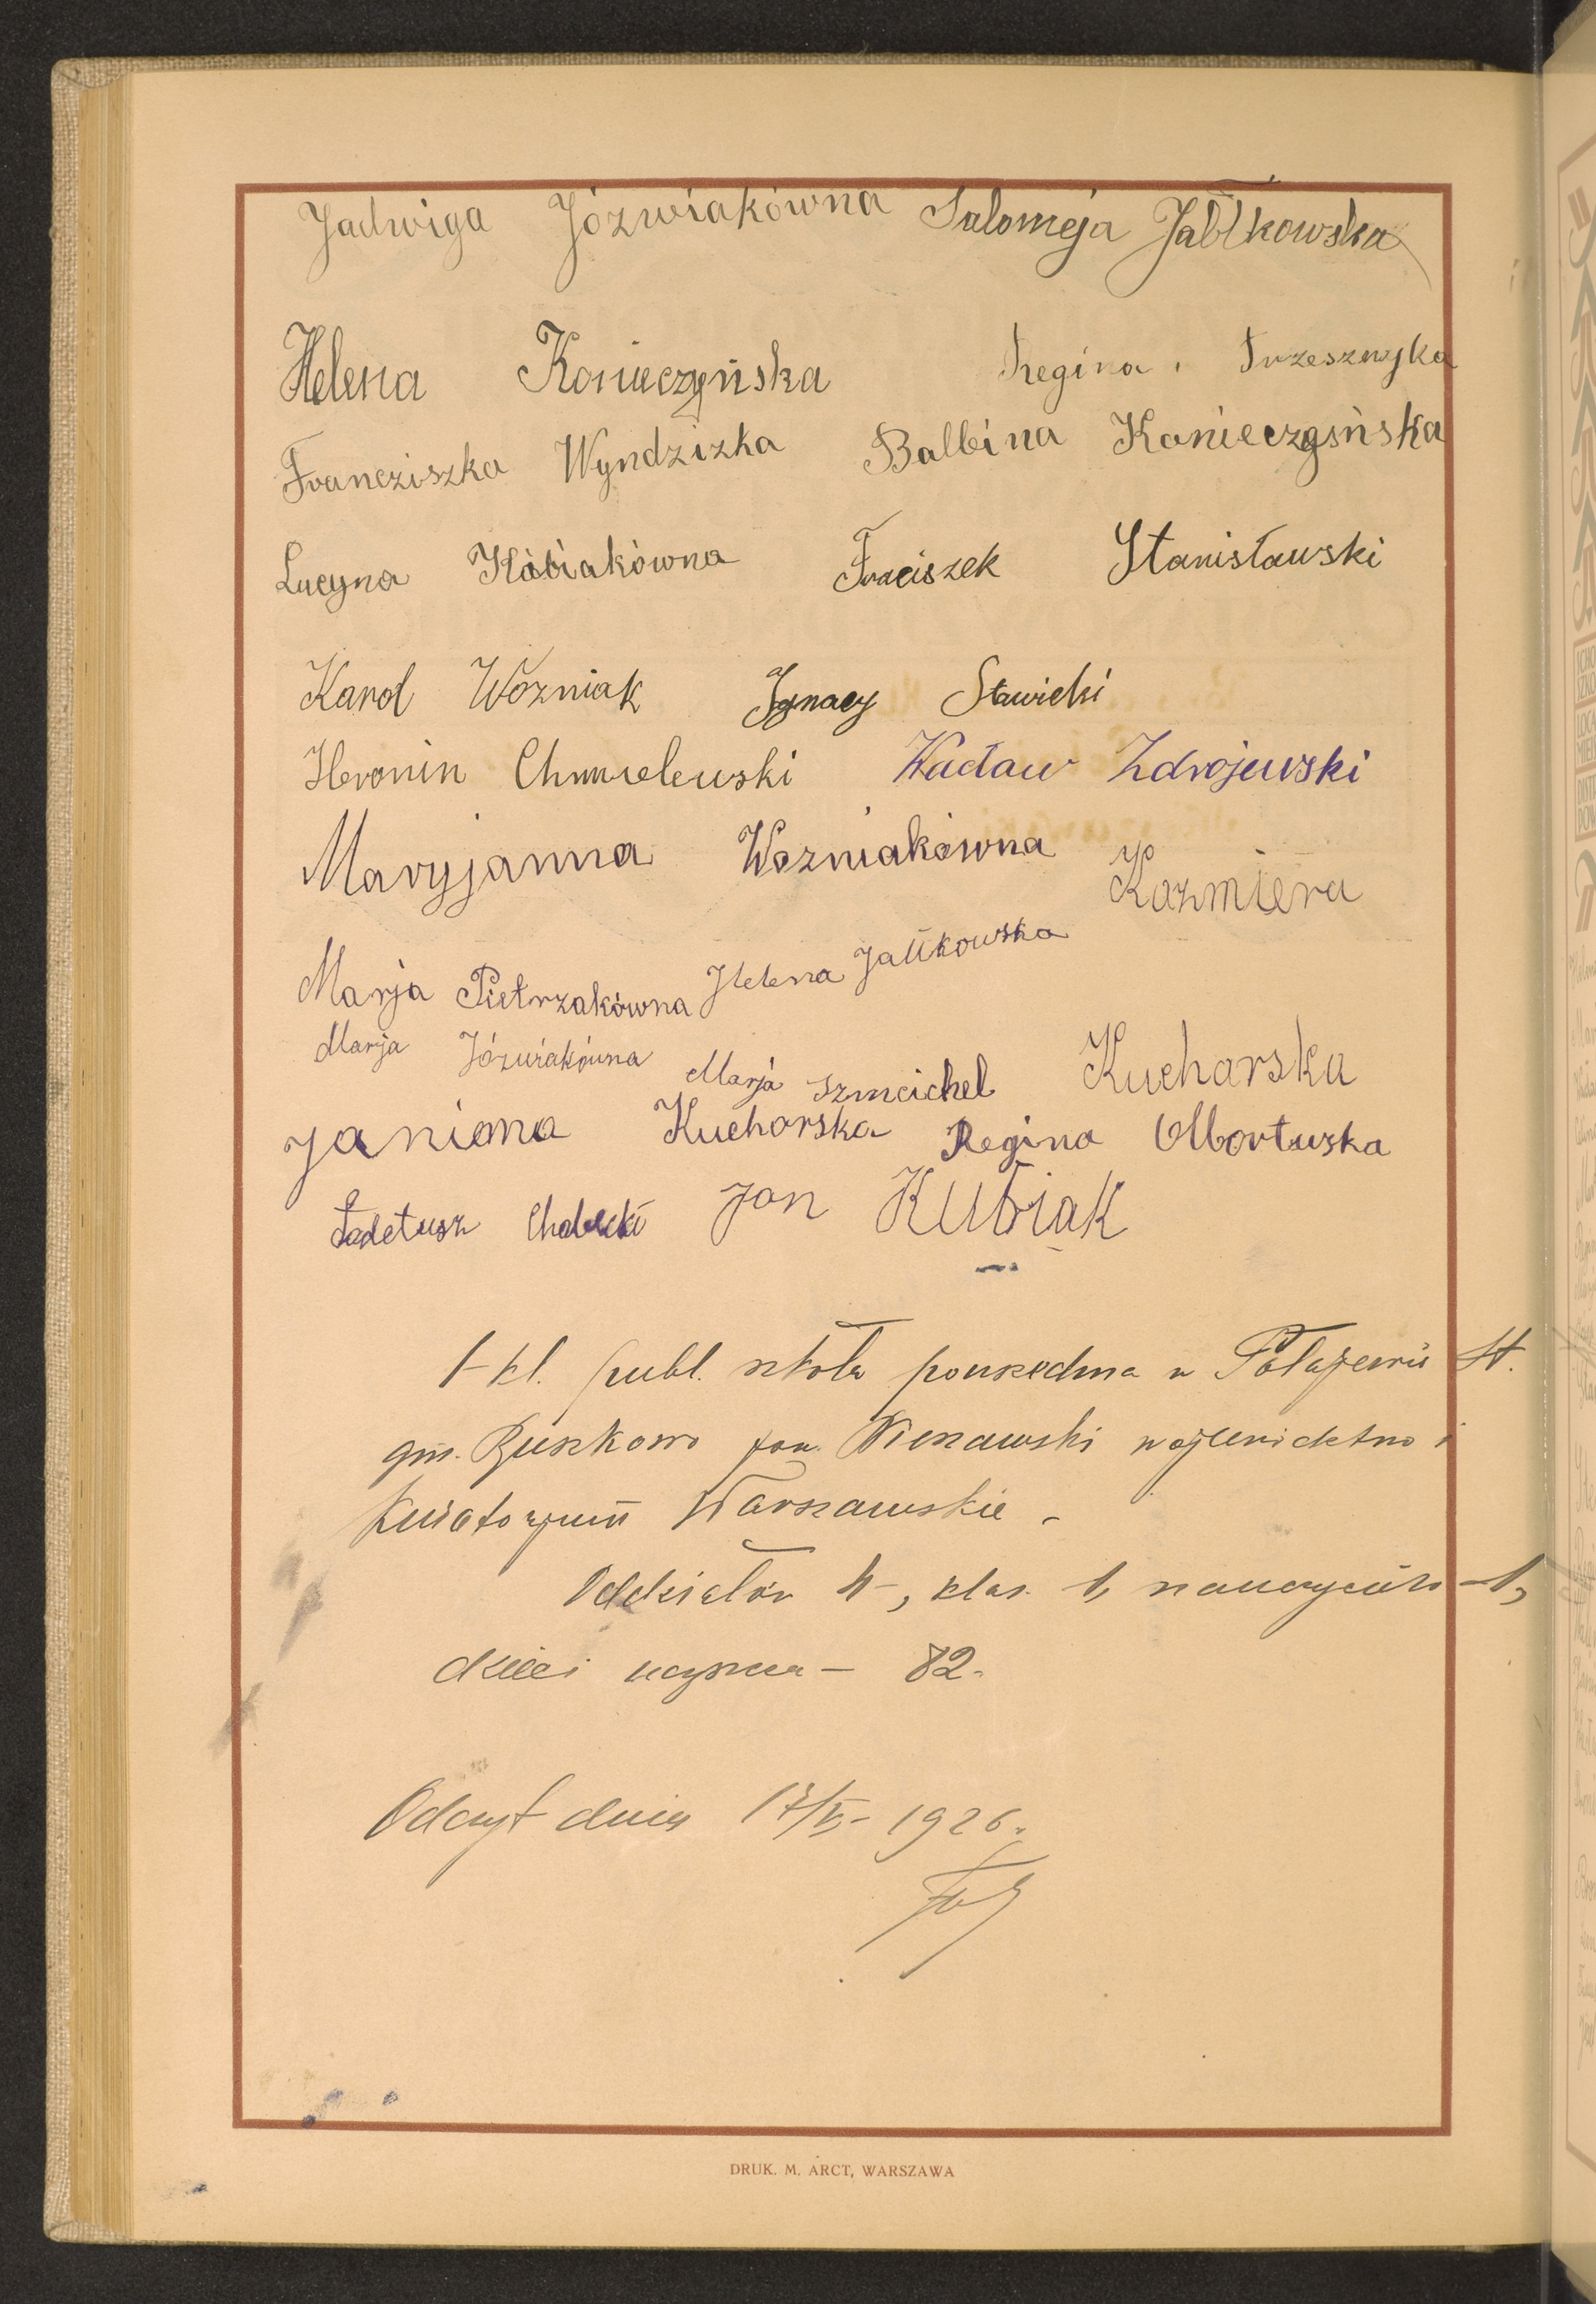 Jadwiga Józwiakówna Salomeja Jabłkowska
Helena Konieczyńska Regina Trzesznyka
Franeziszka Wyndzizka Balbina Koniecz
Lucyna Kubiakówna Fraciszek Stanisławski
Karol Wozniak Ignacy Stawicki
Heronin Chmielewski Wacław Zdrojewski
Maryjanna Wozniakówna
Kazmiera
Marja Pietrzakówna Helena Jabłkowska
Marja Józwiakówna Marja Szmeichel Kucharska
Janiona Kucharska Regina
Tadetusz Chabecki Jan Kubiak
1-kl. publ. szkoła powszechna w St.
gm. pow. Nieszawski województwo i
Kuratorjum Warszawskie -
Oddziałów 4-, klas. 1, nauczycieli -1,
dzieci uczęszcza - 82.
Odczyt dnia 1926.
DRUK. M. ARCT, WARSZAWA